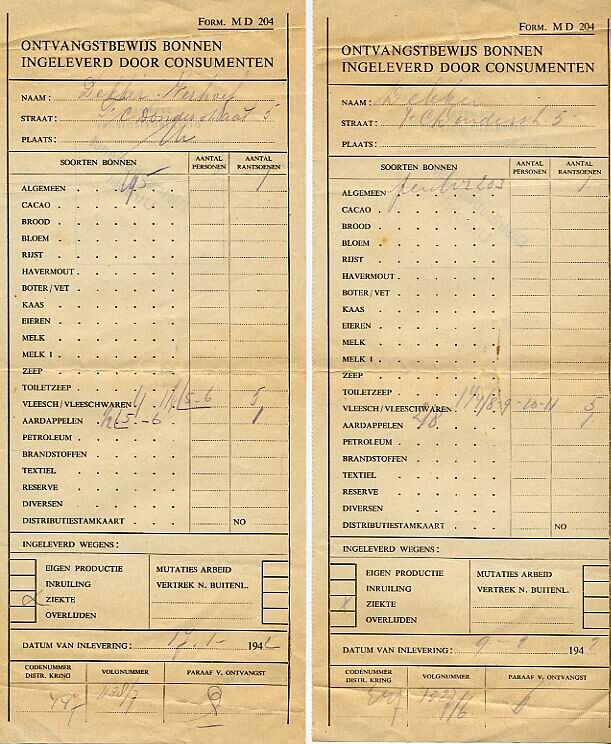 FORM. M D 204
ONTVANGSTBEWIJS BONNEN
INGELEVERD DOOR CONSUMENTEN
NAAM: Dekker
STRAAT: 5
PLAATS:
SOORTEN BONNEN AANTAL PERSONEN AANTAL RANTSOENEN
ALGEMEEN 195 1
CACAO
BROOD
BLOEM
RIJST
HAVERMOUT
BOTER/VET
KAAS
EIEREN
MELK
MELK I
ZEEP
TOILETZEEP
VLEESCH/VLEESCHWAREN 5-6 5
AARDAPPELEN 5-6 1
PETROLEUM
BRANDSTOFFEN
TEXTIEL
RESERVE
DIVERSEN
DISTRIBUTIESTAMKAART NO
INGELEVERD WEGENS:
EIGEN PRODUCTIE MUTATIES ARBEID
INRUILING VERTREK N. BUITENL.
ZIEKTE
OVERLIJDEN
DATUM VAN INLEVERING: 17-1- 194
CODENUMMER DISTR. KRING VOLGNUMMER PARAAF V. ONTVANGST
447
FORM. M D 204
ONTVANGSTBEWIJS BONNEN
INGELEVERD DOOR CONSUMENTEN
NAAM: Dekker
STRAAT: 5
PLAATS:
SOORTEN BONNEN AANTAL PERSONEN AANTAL RANTSOENEN
ALGEMEEN 203 1
CACAO
BROOD
BLOEM
RIJST
HAVERMOUT
BOTER/VET
KAAS
EIEREN
MELK
MELK I
ZEEP
TOILETZEEP
VLEESCH/VLEESCHWAREN 9-10-11 5
AARDAPPELEN 1
PETROLEUM
BRANDSTOFFEN
TEXTIEL
RESERVE
DIVERSEN
DISTRIBUTIESTAMKAART NO
INGELEVERD WEGENS:
EIGEN PRODUCTIE MUTATIES ARBEID
INRUILING VERTREK N. BUITENL.
X ZIEKTE
OVERLIJDEN
DATUM VAN INLEVERING: 9-2 194
CODENUMMER DISTR. KRING VOLGNUMMER PARAAF V. ONTVANGST